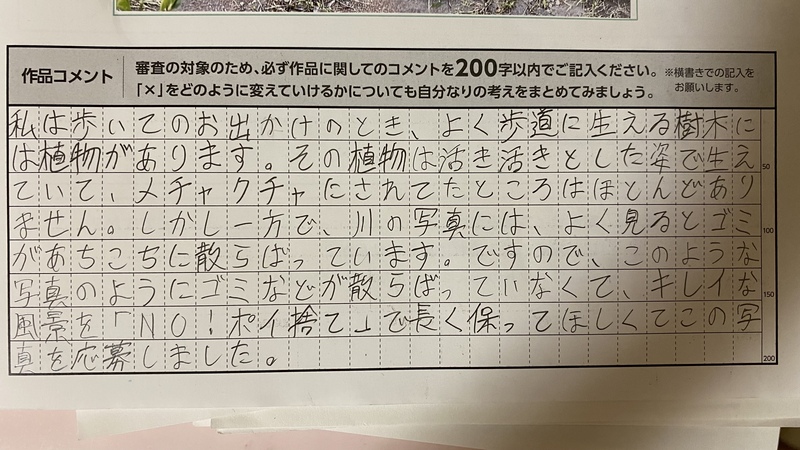 作品コメント
審査の対象のため、必ず作品に関してのコメントを200字以内でご記入ください。※横書きでの記入を
「×」をどのように変えていけるかについても自分なりの考えをまとめてみましょう。 お願いします。
私は歩いてのお出かけのとき、よく歩道に生える樹木に
は植物があります。その植物は活き活きとした姿で生え 50
ていて、メチャクチャにされてたところはほとんどあり
ません。しかし一方で、川の写真には、よく見るとゴミ 100
があちこちに散らばっています。ですので、このような
写真のようにゴミなどが散らばっていなくて、キレイな 150
風景を「NO!ポイ捨て」で長く保ってほしくてこの写
真を応募しました。 200